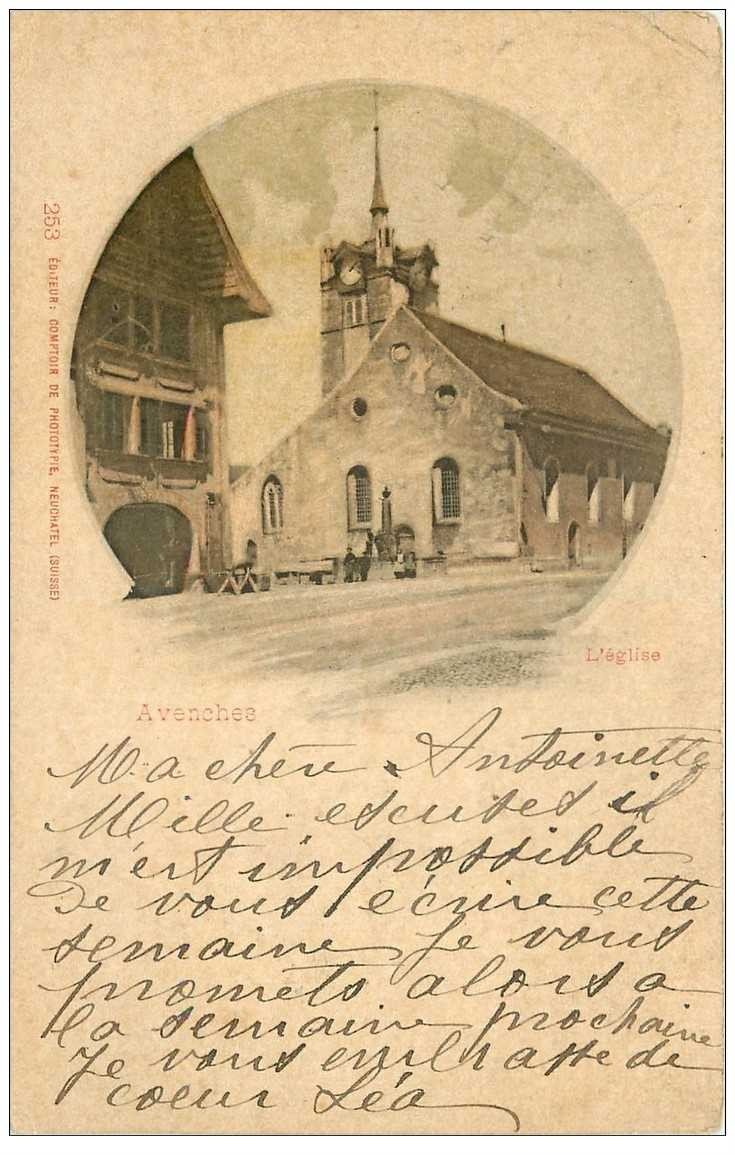 253 ÉDITEUR: COMPTOIR DE PHOTOTYPIE, NEUCHATEL (SUISSE)
L'église
Avenches
Ma chère Antoinette
Mille escuses il
m'est impossible
de vous écrire cette
semaine Je vous
promets alors a
la semaine prochaine
Je vous embrasse de
coeur Léa